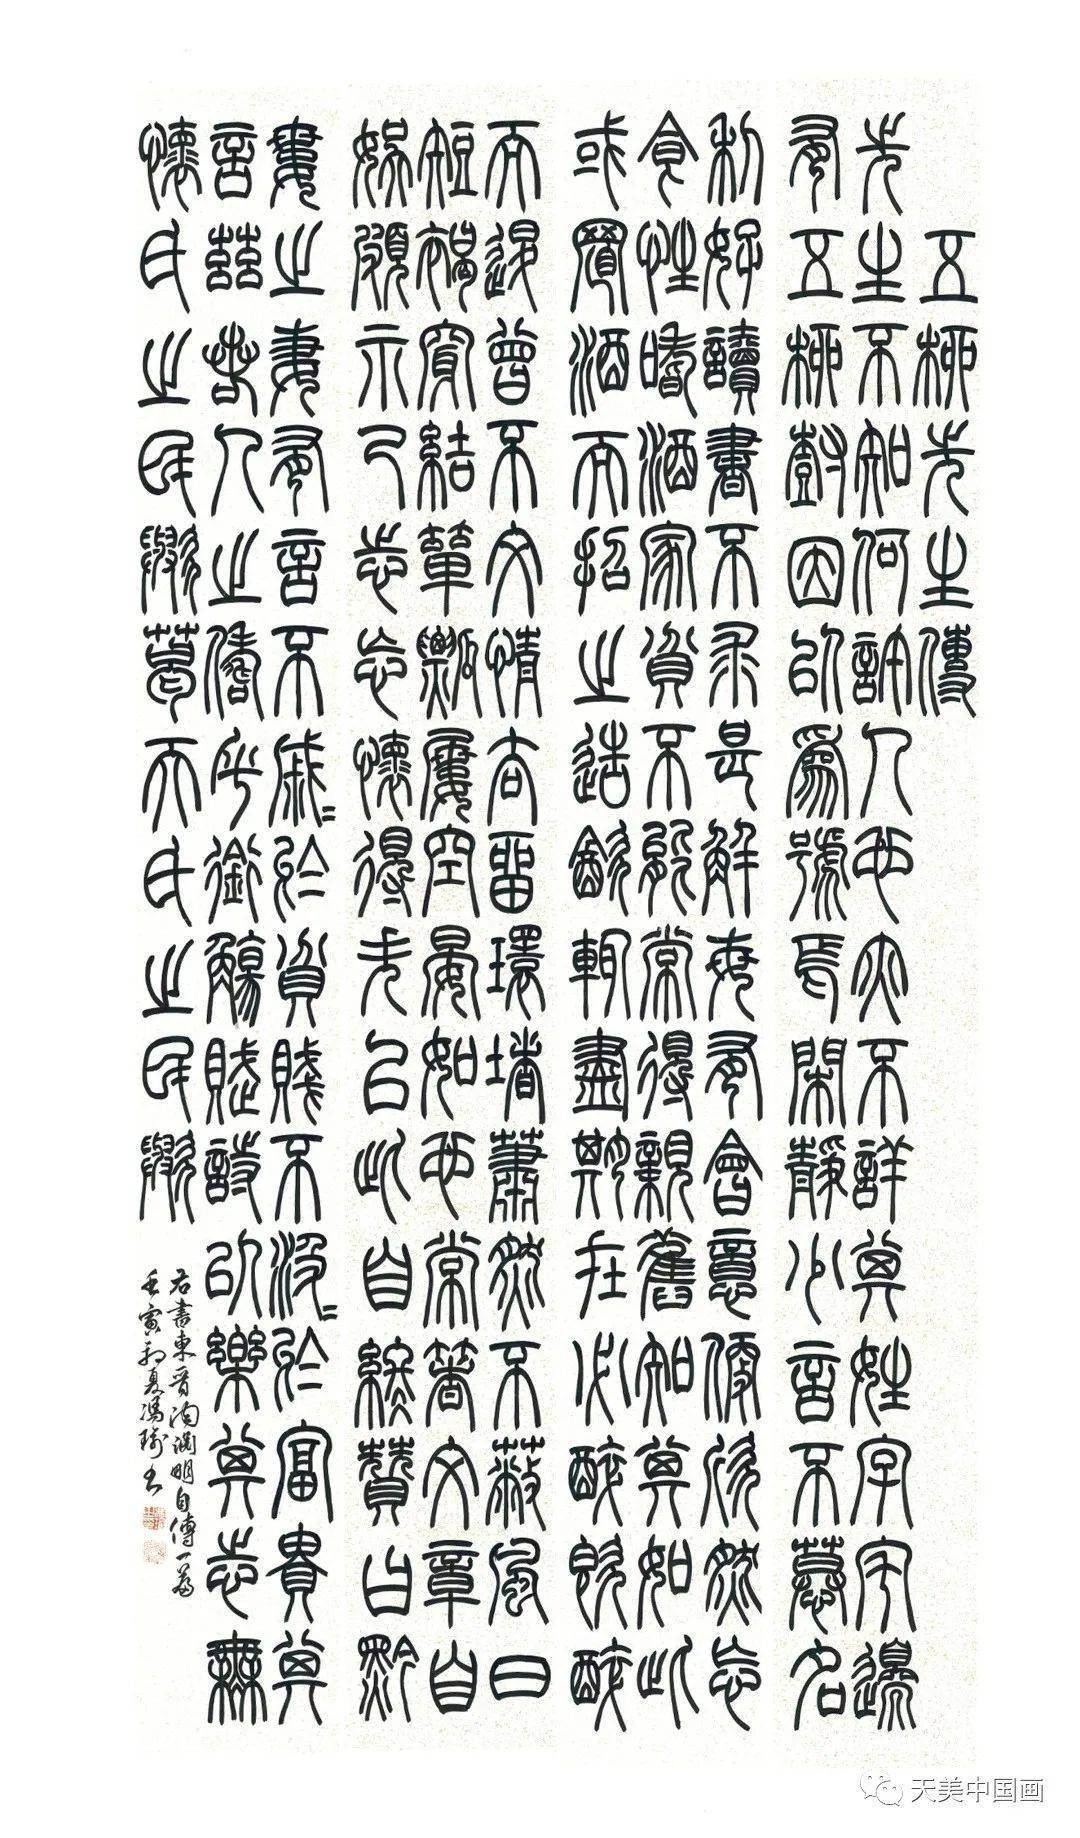 五柳先生傳
先生不知何許人也亦不詳其姓字宅邊
有五柳樹因以為號焉閑靜少言不慕名
利好讀書不求甚解每有會意便欣然忘
食性嗜酒家貧不能常得親舊知其如此
或置酒而招之造飲輒盡期在必醉既醉
而退曾不文情去留環堵蕭然不蔽風日
短褐穿結簞瓢屢空晏如也常著文章自
娛頗示己志忘懷得失以此自終贊曰黔
婁之妻有言不戚〻於貧賤不汲〻於富貴其
言茲若人之儔乎銜觴賦詩以樂其志無
懷氏之民歟葛天氏之民歟
右書東晉陶淵明自傳一篇
壬寅初夏馮书
天美中国画